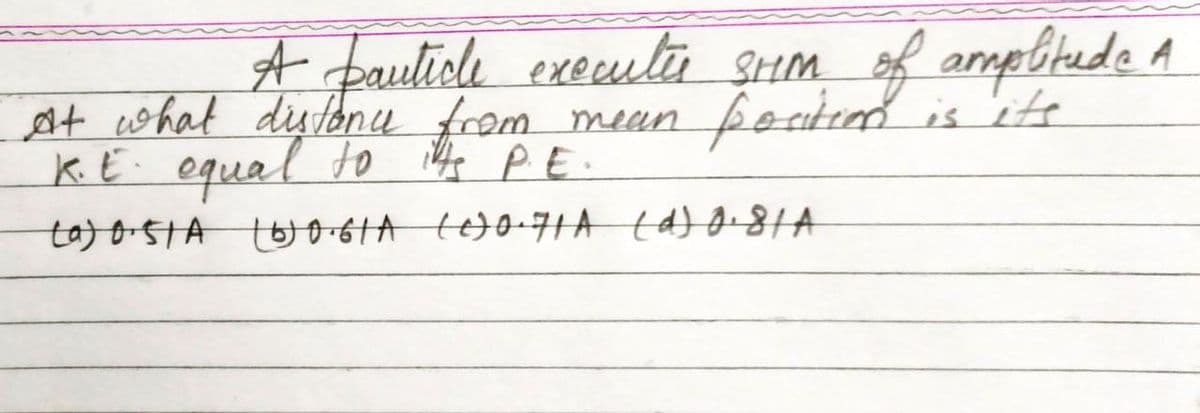 A particle executes SHM of amplitude A
At what distance from mean position is its
K.E. equal to its P.E.
(a) 0.51A (b) 0.61A (c) 0.71A (d) 0.81A